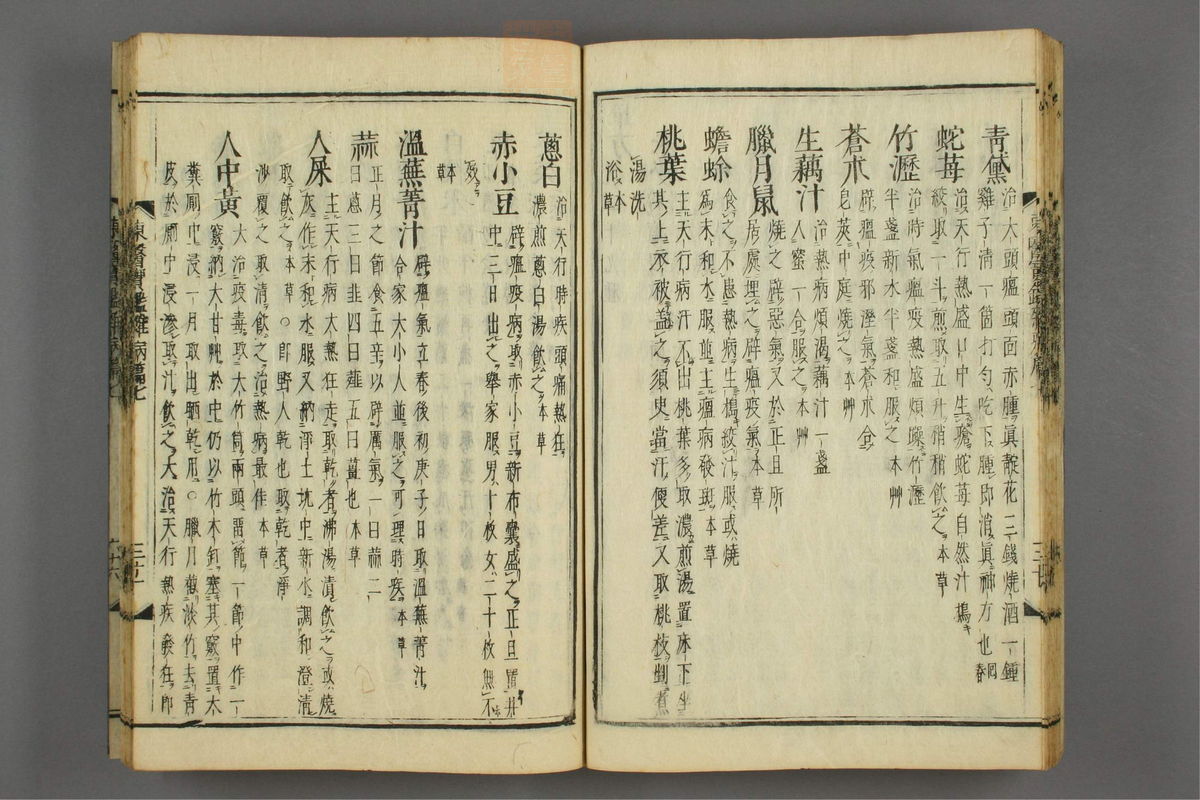 青黛
治大頭瘟頭面赤腫眞靛花三錢燒酒一鍾
雞子清一箇打勻吃下腫卽消眞神方也
蛇苺
治天行熱盛口中生瘡蛇苺自然汁搗
絞取一斗煎取五升稍稍飮之本草
竹瀝
治時氣瘟疫熱盛煩躁竹瀝
半盞新水半盞和服之本艸
蒼朮
辟瘟疫邪溼氣蒼朮合
皂莢中庭燒之本艸
生藕汁
治熱病煩渴藕汁一盞
入蜜一合服之本艸
臘月鼠
燒之辟惡氣又於正旦所
居處埋之辟瘟疫氣本草
蟾蜍
食之不患熱病生搗絞汁服或燒
爲末和水服並主瘟病發斑本草
桃葉
主天行病汗不出桃葉多取濃煎湯置床下坐
其上衣被盖之須臾當汗便差又取桃枝剉煮
湯洗
浴本草
葱白
治天行時疾頭痛熱狂
濃煎葱白湯飮之本草
赤小豆
辟瘟疫病取赤小豆新布囊盛之正旦置井
中三日出之擧家服男十枚女二十枚無不
效
本草
溫蕪菁汁
辟瘟氣立春後初庚子日取溫蕪菁汁
合家大小人並服之可理時疾本草
蒜
正月之節食五辛以辟厲氣一曰蒜二
曰葱三曰韭四曰薤五曰薑也本草
人屎
主天行病大熱狂走取乾者沸湯漬飮之或燒
灰作末和水服又納淨土坑中新水調和澄淸
取飮之本草○卽野人乾也取乾者淨
沙覆之取淸飮之治熱病最作本草
人中黃
大治疫毒大竹筒兩頭留節一節中作一
竅納大甘艸於中仍以竹木釘塞其竅置大
糞厠中浸一月取出晒乾用○臘月截淡竹去靑
皮於厠中浸滲取汁飮之大治天行熱疾發狂卽
東醫寶鑑雜病篇七